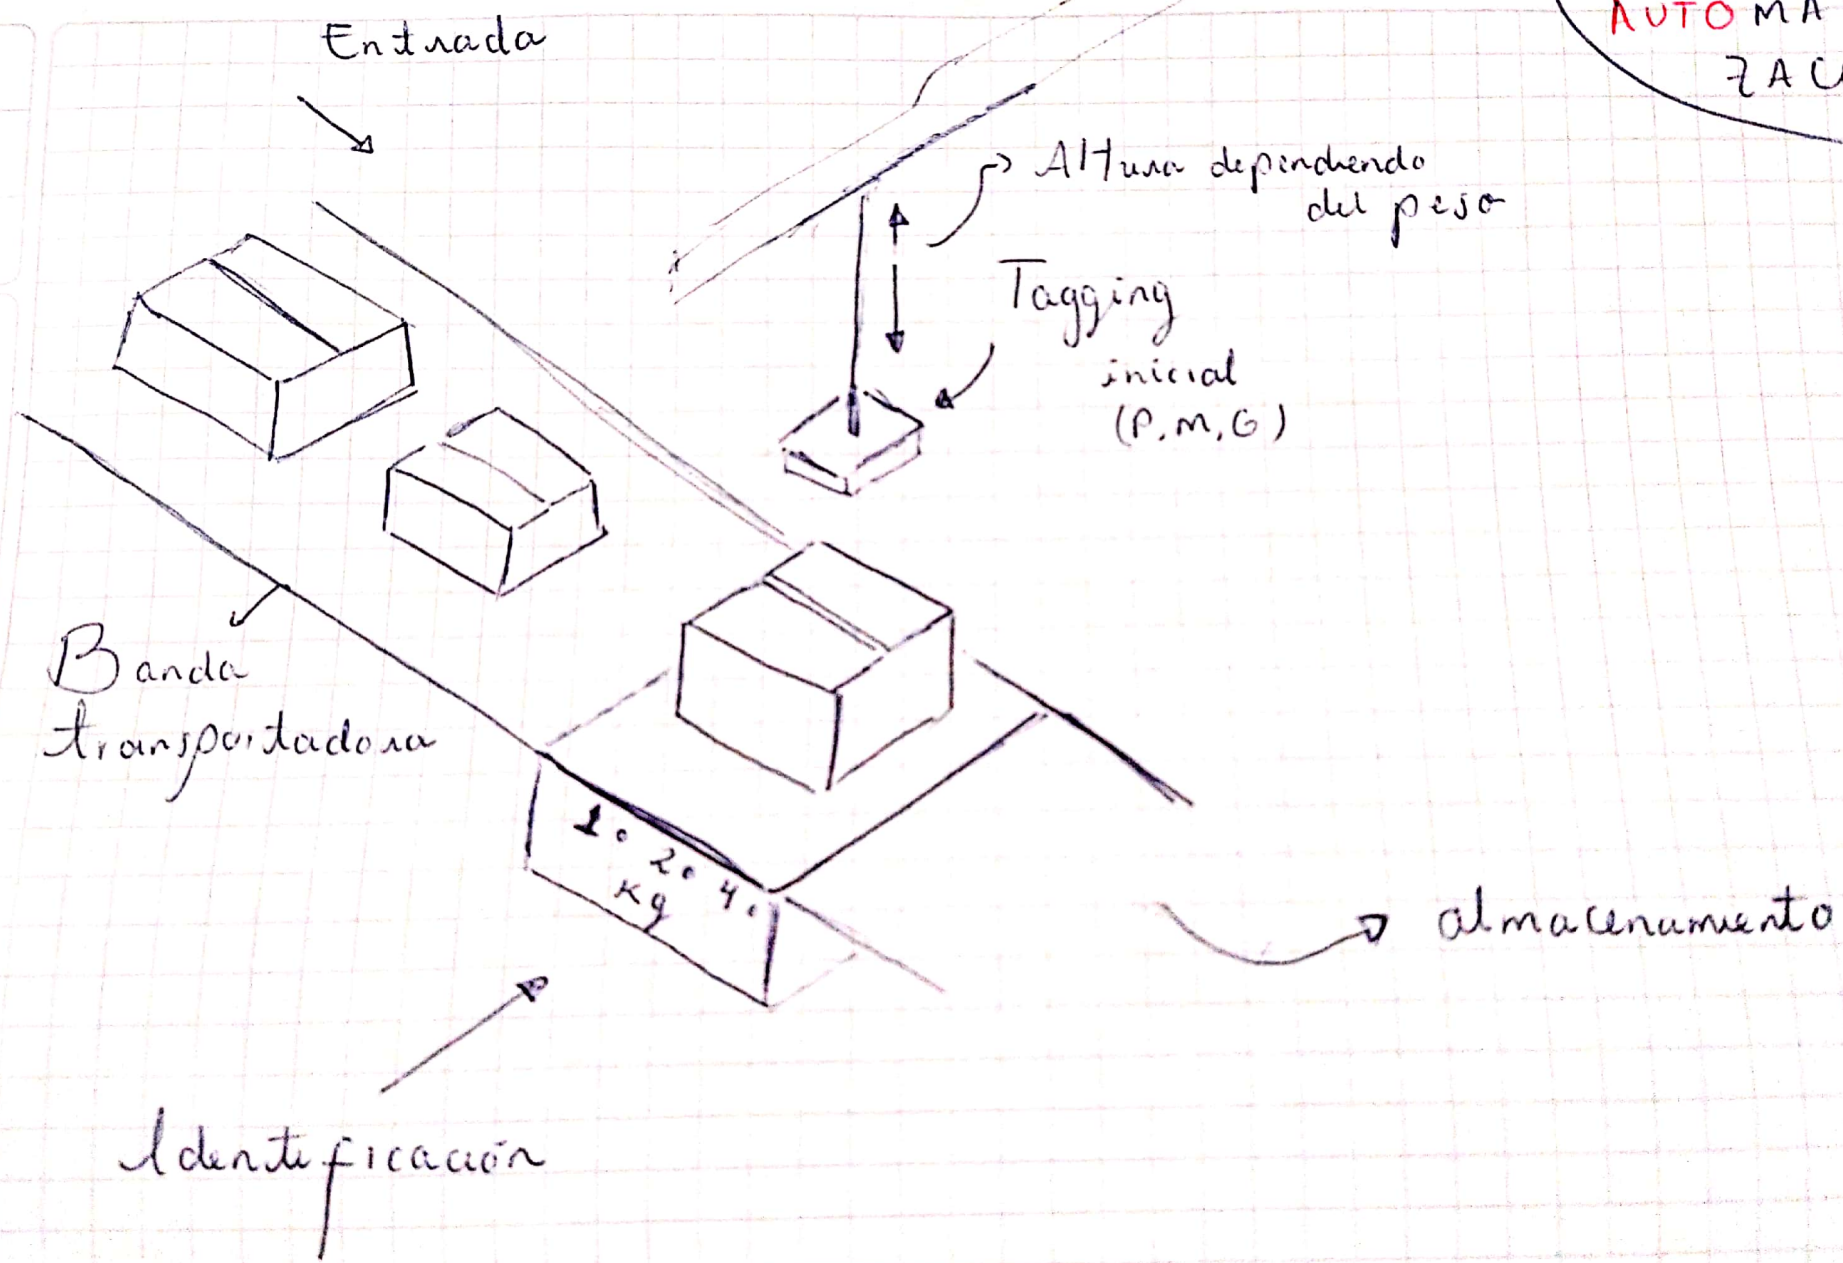 Entrada
AUTOMA
ZACI
Altura dependiendo
del peso
Tagging
inicial
(P, M, G)
Banda
transportadora
1. 2. 4.
Kg
almacenamiento
Identificación